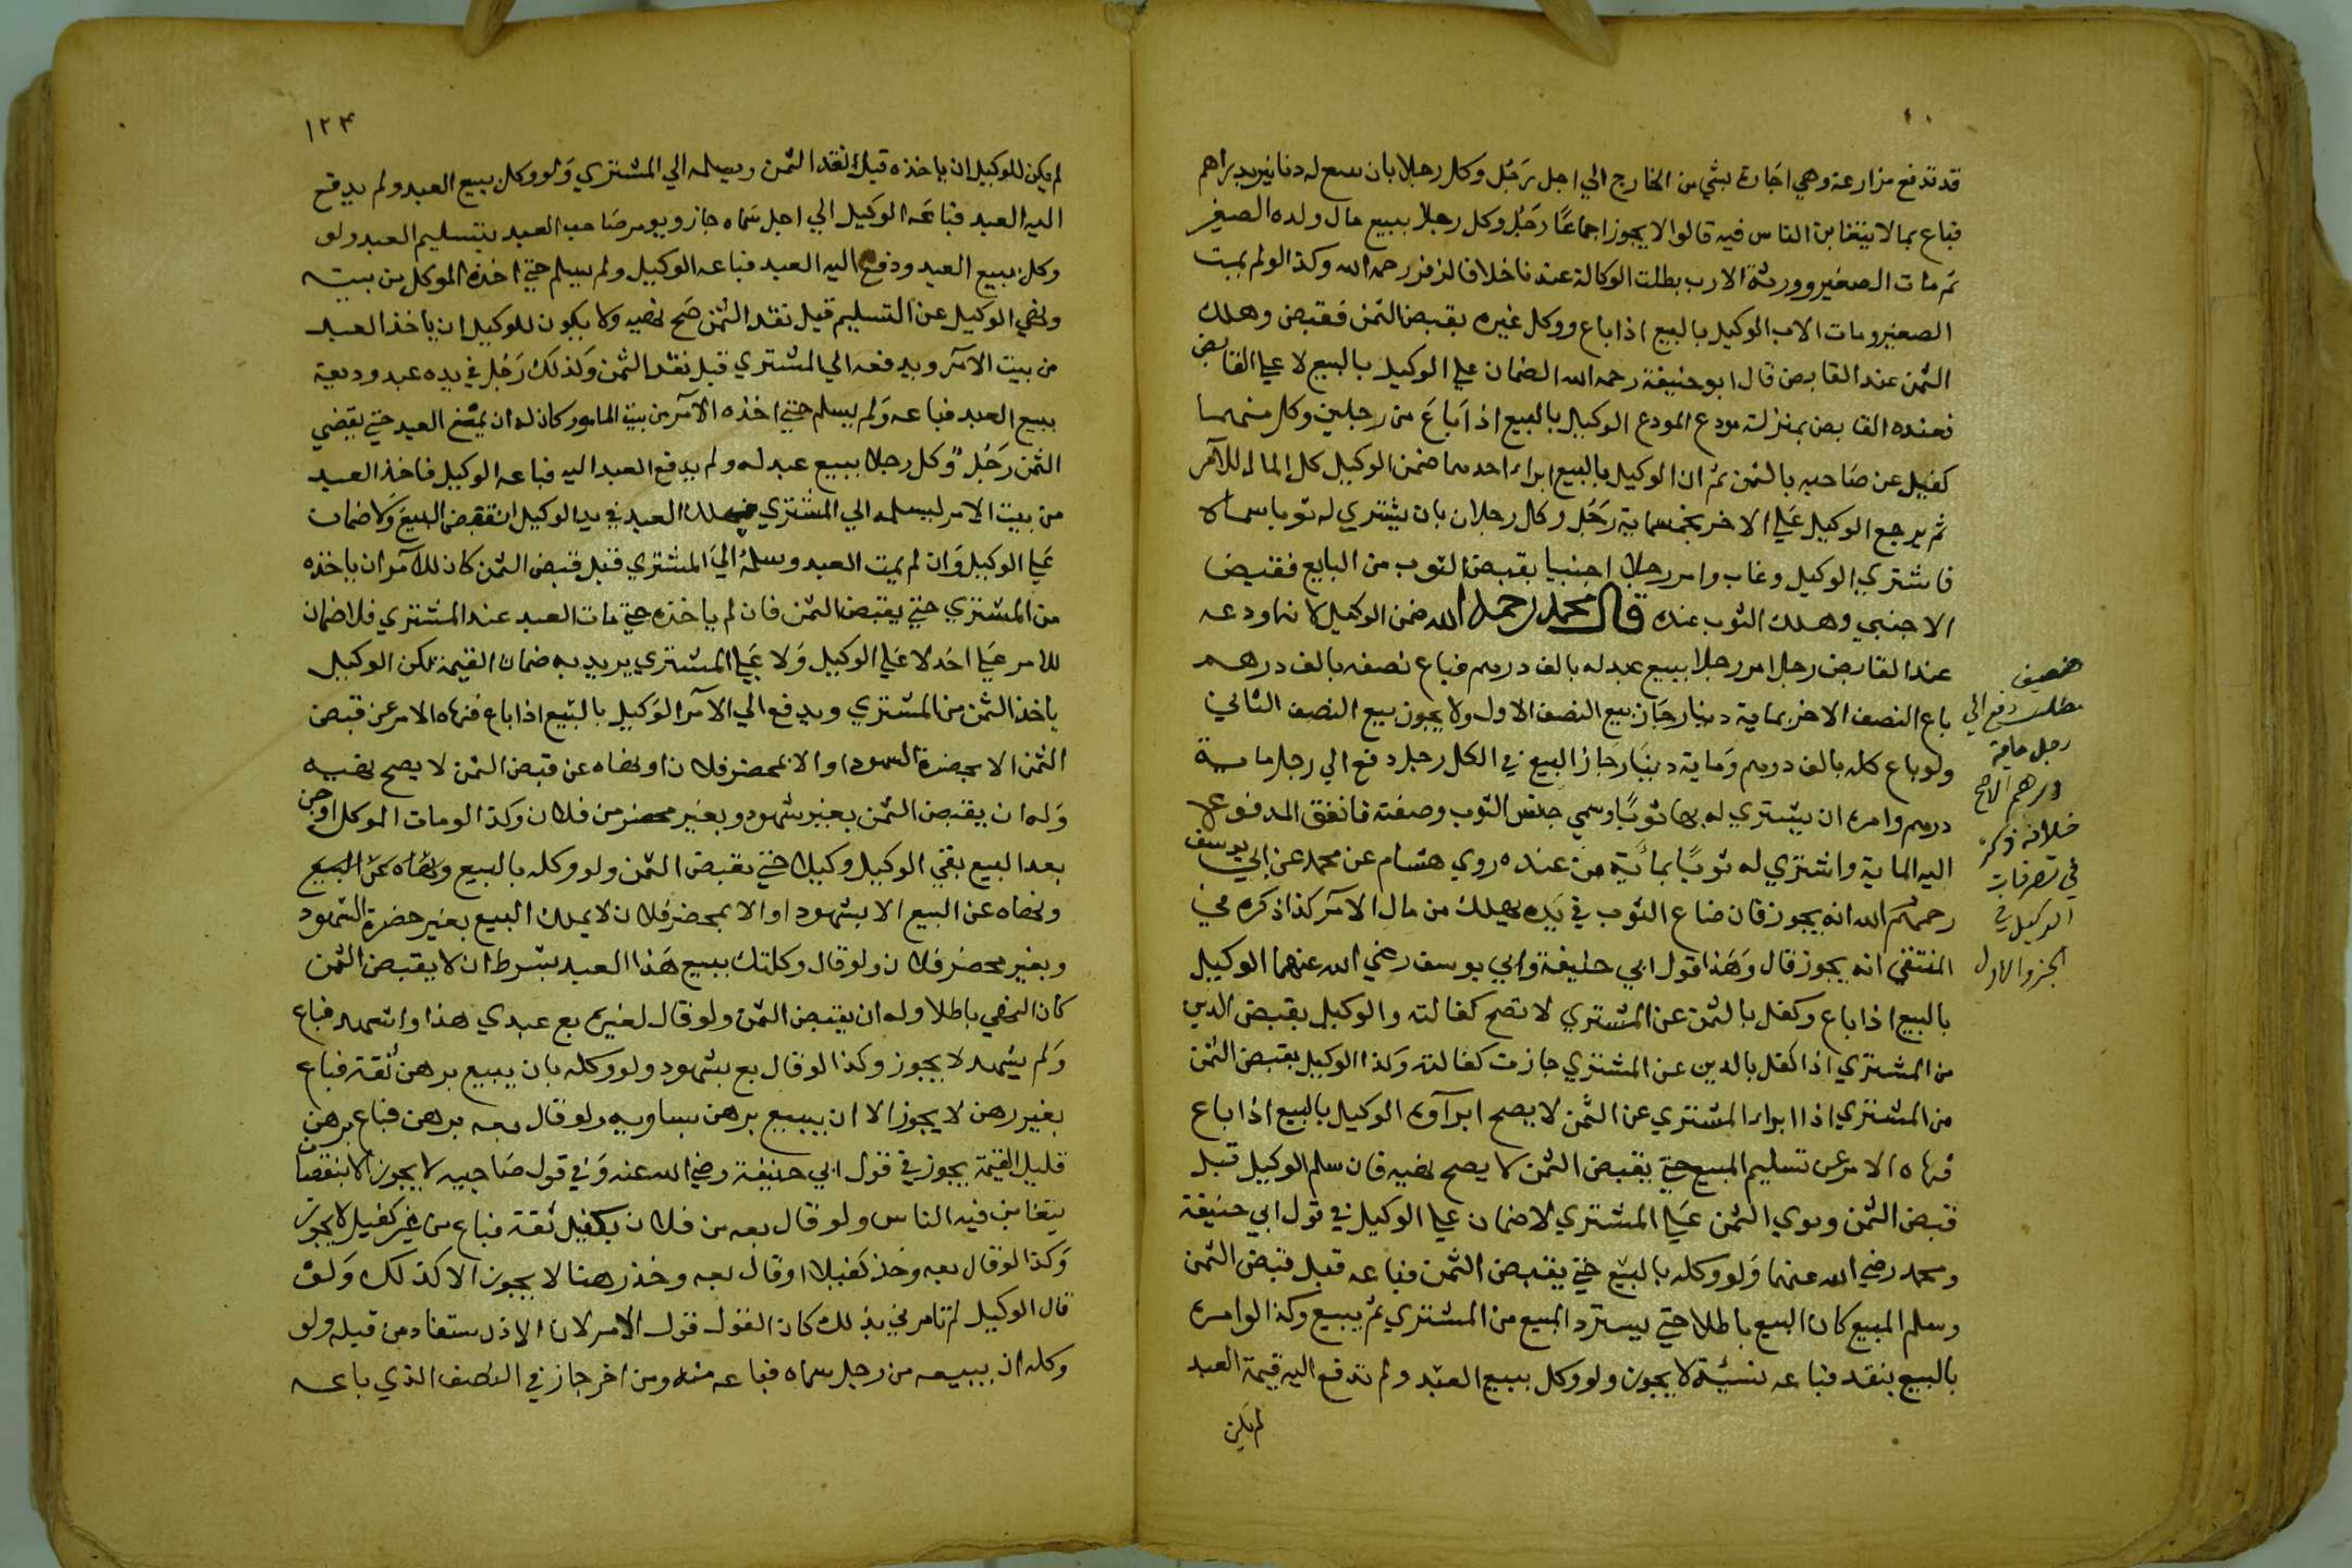 قد تدفع مزارعة وهي اجارة بشي من الخارج الي اجل رجل وكل رجلا بان يبيع له دنانير بدراهم
فباع بما لا يتغابن الناس فيه قالوا لا يجوز اجماعا رجل وكل رجلا ببيع مال ولده الصغير
ثم مات الصغير وورثه الاب بطلت الوكالة عندنا خلافا لزفر رحمه الله وكذا لو لم يمت
الصغير ومات الاب الوكيل بالبيع اذا باع ووكل غيره بقبض الثمن فقبض وهلك
الثمن عند القابض قال ابو حنيفة رحمه الله الضمان علي الوكيل بالبيع لا علي القابض
فعنده القابض بمنزلة مودع المودع الوكيل بالبيع اذا باع من رجلين وكل منهما
كفيل عن صاحبه بالثمن ثم ان الوكيل بالبيع ابراء احدهما ضمن الوكيل كل المال للآمر
ثم يرجع الوكيل علي الاخر بخمسماية رجل وكل رجلا بان يشتري له ثوبا سماه
فاشتري الوكيل وغاب وامر رجلا اجنبيا بقبض الثوب من البايع فقبض
الاجنبي وهلك الثوب عنده قال محمد رحمه الله ضمن الوكيل لانه اودعه
عند القابض رجل امر رجلا ببيع عبد له بالف درهم فباع نصفه بالف درهم
باع النصف الاخر بماية دينار جاز بيع النصف الاول ولا يجوز بيع النصف الثاني
ولو باع كله بالف درهم وماية دينار جاز البيع في الكل رجل دفع الي رجل ماية
درهم وامره ان يشتري له بها ثوبا وسمي جنس الثوب وصفته فانفق المدفوع
اليه الماية واشتري له ثوبا بمائة من عنده روي هشام عن محمد عن ابي يوسف
رحمهم الله انه يجوز فان ضاع الثوب في يده يهلك من مال الآمر كذا ذكره في
المنتقي انه يجوز قال وهذا قول ابي حنيفة وابي يوسف رضي الله عنهما الوكيل
بالبيع اذا باع وكفل بالثمن عن المشتري لا تصح كفالته والوكيل بقبض الدين
من المشتري اذا كفل بالدين عن المشتري جازت كفالته وكذا الوكيل بقبض الثمن
من المشتري اذا ابراء المشتري عن الثمن لا يصح ابرآؤه الوكيل بالبيع اذا باع
فنهاه الامر عن تسليم المبيع حتي يقبض الثمن لا يصح نهيه فان سلم الوكيل قبل
قبض الثمن وتوي الثمن علي المشتري لا ضمان علي الوكيل في قول ابي حنيفة
ومحمد رضي الله عنهما ولو وكله بالبيع حتي يقبض الثمن فباعه قبل قبض الثمن
وسلم المبيع كان البيع باطلا حتي يسترد المبيع من المشتري ثم يبيع وكذا لو امره
بالبيع بنقد فباعه نسيئة لا يجوز ولو وكل ببيع العبد ولم تدفع اليه قيمة العبد
لم يكن
مطلب دفع الي
رجل ماية
درهم
خلافه ذكره
في تصرفات
الوكيل في
الجزو الاول
١٢٣
لم يكن للوكيل ان ياخذه قبل نقد الثمن ويسلمه الي المشتري ولو وكل ببيع العبد ولم يدفع
اليه العبد فباعه الوكيل الي اجل سماه جاز ويومر صاحب العبد بتسليم العبد ولو
وكل ببيع العبد ودفع اليه العبد فباعه الوكيل ولم يسلم حتي اخذه الموكل من بيته
ونهي الوكيل عن التسليم قبل نقد الثمن صح نهيه ولا يكون للوكيل ان ياخذ العبد
من بيت الآمر ويدفعه الي المشتري قبل نقد الثمن وكذلك رجل في يده عبد وديعة
ببيع العبد فباعه ولم يسلم حتي اخذه الآمر من بيت المامور كان له ان يمنع العبد حتي يقضي
الثمن رجل وكل رجلا ببيع عبد له ولم يدفع العبد اليه فباعه الوكيل فاخذ العبد
من بيت الامر ليسلمه الي المشتري فهلك العبد في يد الوكيل انتقض البيع ولا ضمان
علي الوكيل وان لم يمت العبد وسلمه الي المشتري قبل قبض الثمن كان للآمر ان ياخذه
من المشتري حتي يقبض الثمن فان لم ياخذه حتي مات العبد عند المشتري فلا ضمان
للامر علي احد لا علي الوكيل ولا علي المشتري يريد به ضمان القيمة لكن الوكيل
ياخذ الثمن من المشتري ويدفع الي الآمر الوكيل بالبيع اذا باع فنهاه الامر عن قبض
الثمن الا بحضرة الشهود او الا بمحضر فلان او نهاه عن قبض الثمن لا يصح نهيه
وله ان يقبض الثمن بغير شهود وبغير محضر من فلان وكذا لو مات الموكل او جن
بعد البيع بقي الوكيل وكيلا حتي يقبض الثمن ولو وكله بالبيع ونهاه عن البيع
ونهاه عن البيع الا بشهود او الا بمحضر فلان لا يملك البيع بغير حضرة الشهود
وبغير محضر فلان ولو قال وكلتك ببيع هذا العبد بشرط ان لا يقبض الثمن
كان النهي باطلا وله ان يقبض الثمن ولو قال لغيره بع عبدي هذا واشهد فباع
ولم يشهد لا يجوز وكذا لو قال بع بشهود ولو وكله بان يبيع برهن ثقة فباع
بغير رهن لا يجوز الا ان يبيع برهن يساويه ولو قال بعه برهن فباع برهن
قليل القيمة يجوز في قول ابي حنيفة رضي الله عنه وفي قول صاحبيه لا يجوز الا بنقصان
يتغابن فيه الناس ولو قال بعه من فلان بكفيل ثقة فباع من غير كفيل لا يجوز
وكذا لو قال بعه وخذ كفيلا او قال بعه وخذ رهنا لا يجوز الا كذلك ولو
قال الوكيل لم تامرني بذلك كان القول قول الامر لان الاذن يستفاد من قبله ولو
وكله ان يبيعه من رجل سماه فباعه منه ومن اخر جاز في النصف الذي باعه